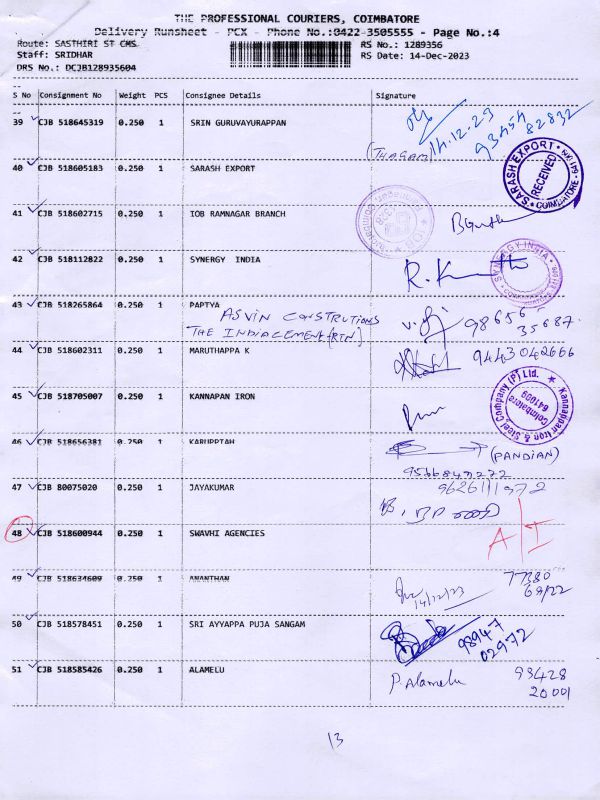 THE PROFESSIONAL COURIERS, COIMBATORE
Delivery Runsheet - PCX - Phone No.:0422-3505555 - Page No.:4
Route: SASTHIRI ST CMS
RS No.: 1289356
Staff: SRIDHAR
RS Date: 14-Dec-2023
DRS No.: DCJB128935604
S No Consignment No Weight PCS Consignee Details Signature
39 CJB 518645319 0.250 1 SRIN GURUVAYURAPPAN
14.12.23 93454 82832
(THAGAM)
40 CJB 518605183 0.250 1 SARASH EXPORT
SARASH EXPORT RECEIVED COIMBATORE
41 CJB 518602715 0.250 1 IOB RAMNAGAR BRANCH
42 CJB 518112822 0.250 1 SYNERGY INDIA
SYNERGY INDIA COIMBATORE
43 CJB 518265864 0.250 1 PAPTYA
ASVIN CONSTRUTIONS
98656 35687
THE INDIACEMENT (RTN)
44 CJB 518602311 0.250 1 MARUTHAPPA K
9443042666
45 CJB 518705007 0.250 1 KANNAPAN IRON
Kannappan Iron & Steel Company (P) Ltd. Coimbatore 641009
46 CJB 518656381 0.250 1 KARUPPIAH
(PANDIAN)
47 CJB 80075020 0.250 1 JAYAKUMAR
48 CJB 518600944 0.250 1 SWAVHI AGENCIES
A/I
49 CJB 518634609 0.250 1 ANANTHAN
14/12/23
77380
50 CJB 518578451 0.250 1 SRI AYYAPPA PUJA SANGAM
98947
02972
51 CJB 518585426 0.250 1 ALAMELU
P. Alamelu
93428
20001
13